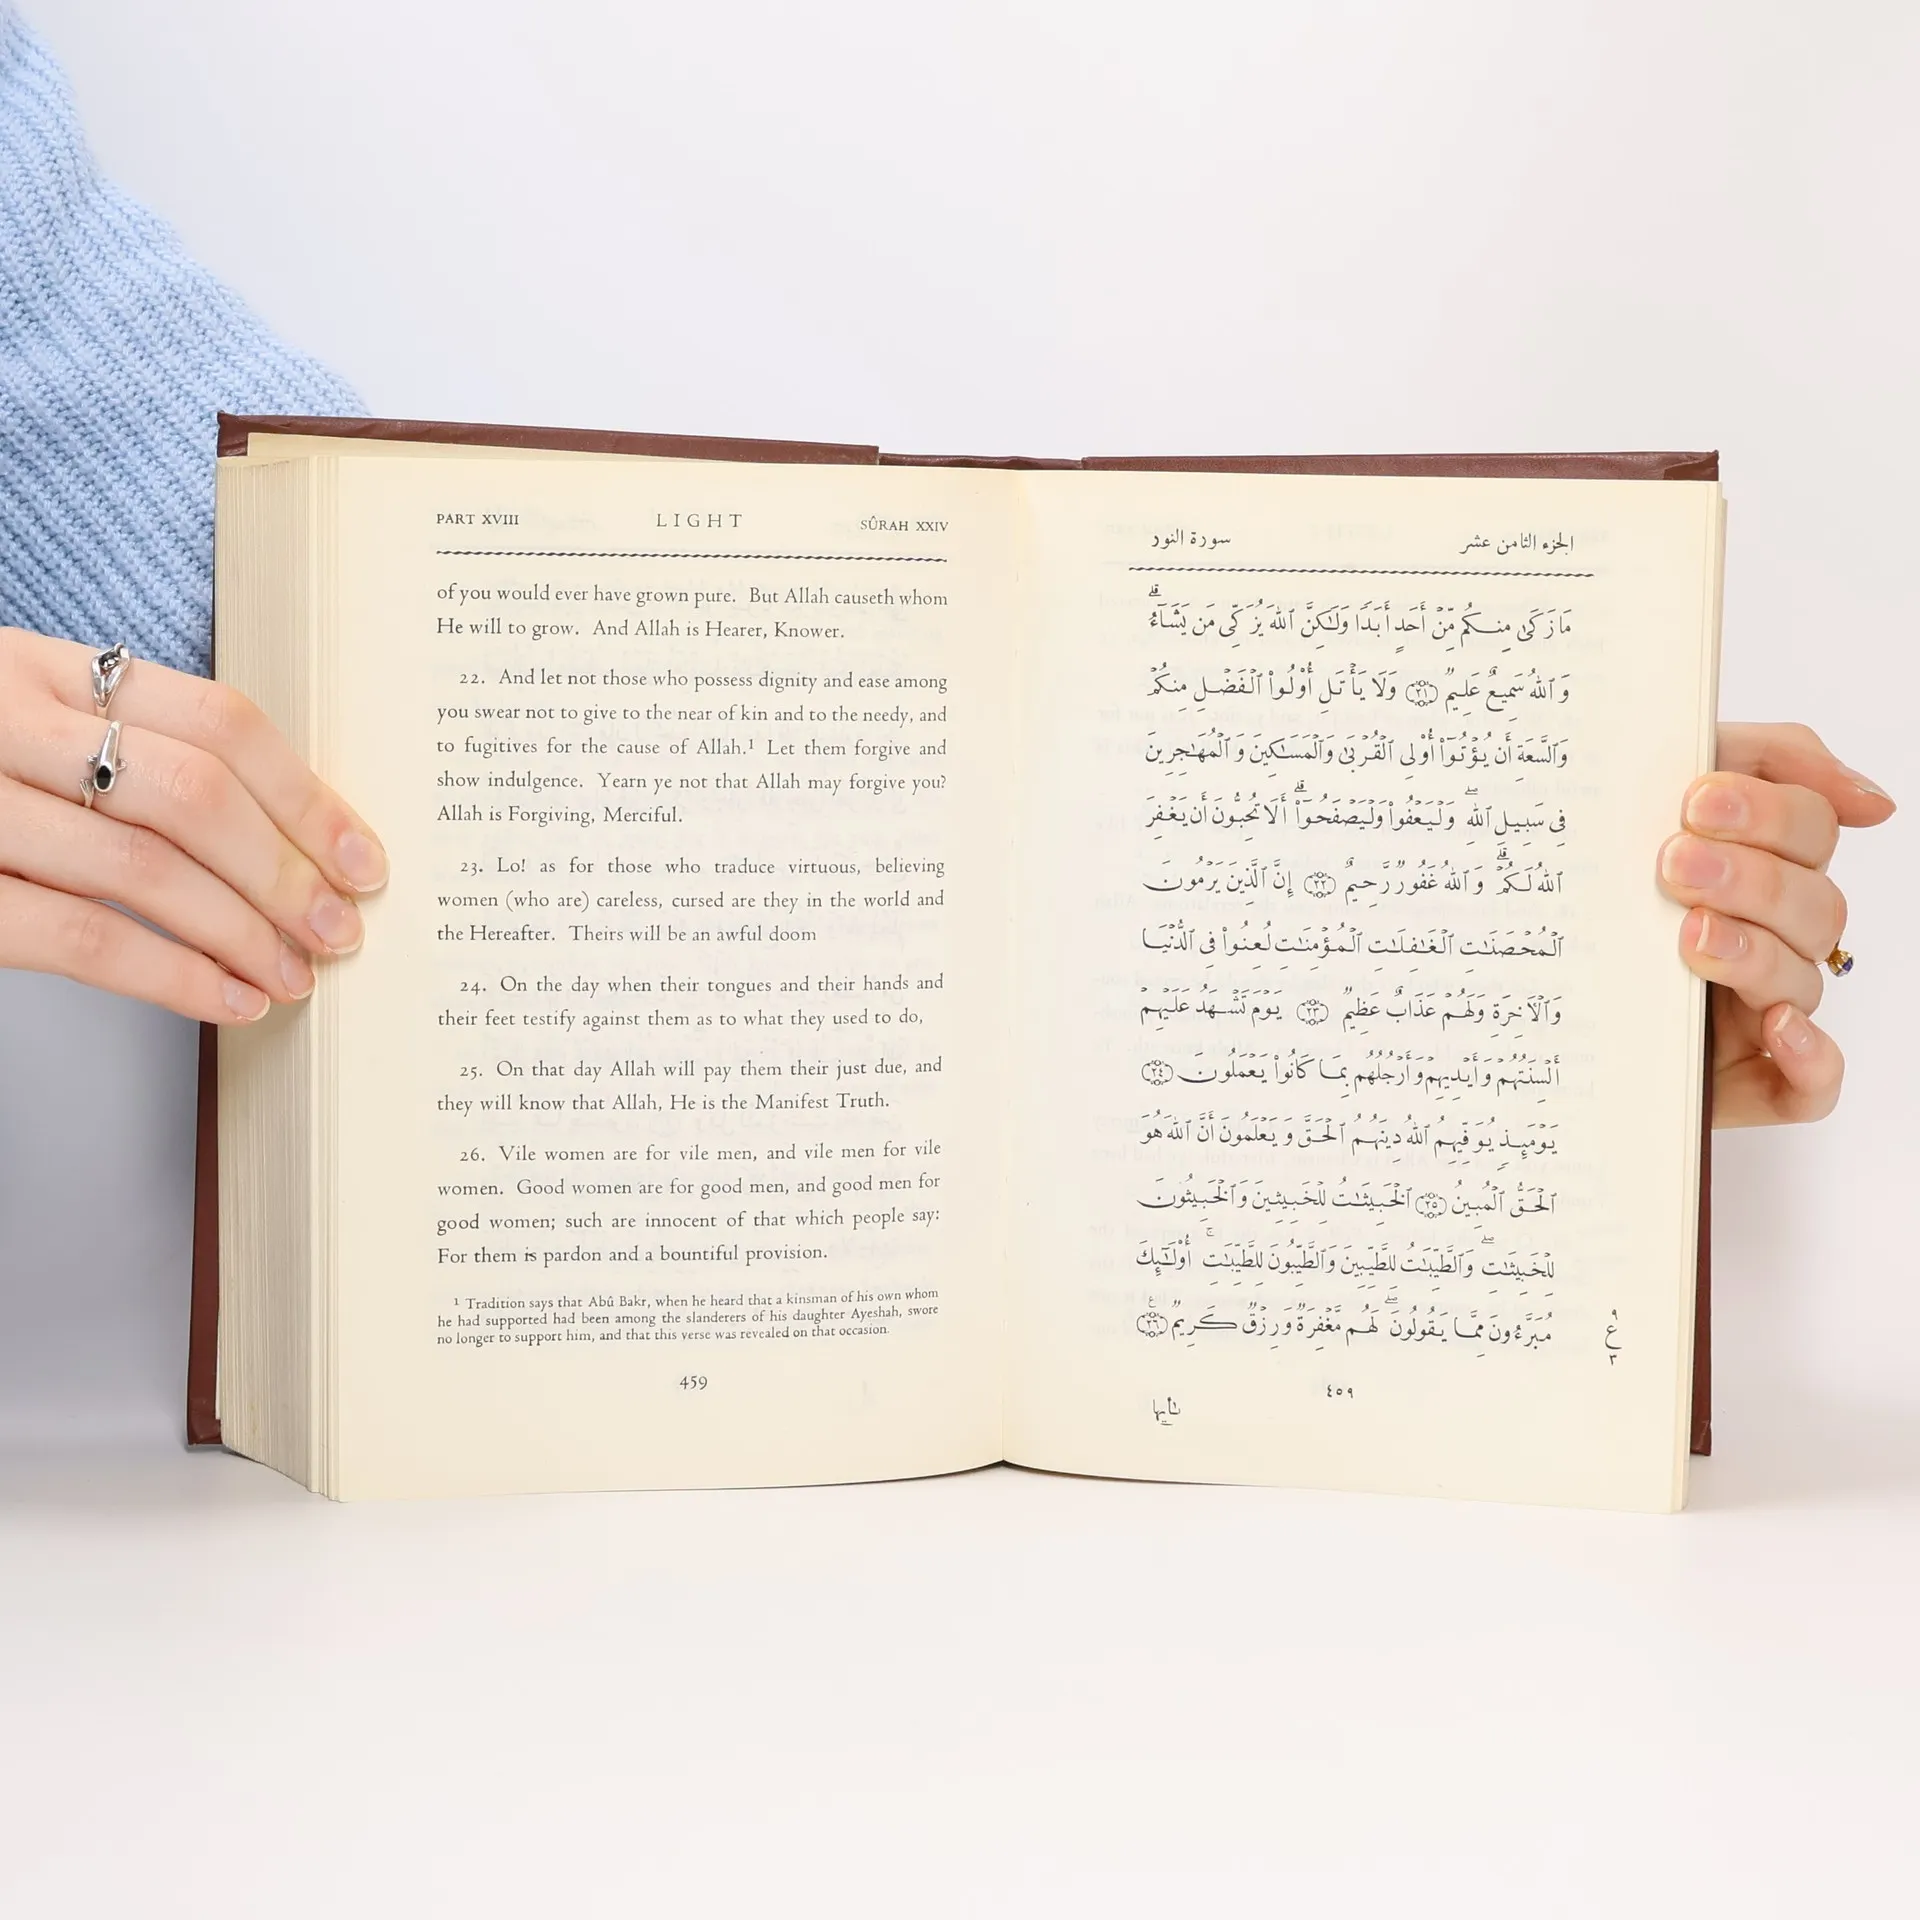 PART XVIII LIGHT SÛRAH XXIV
of you would ever have grown pure. But Allah causeth whom
He will to grow. And Allah is Hearer, Knower.
22. And let not those who possess dignity and ease among
you swear not to give to the near of kin and to the needy, and
to fugitives for the cause of Allah.¹ Let them forgive and
show indulgence. Yearn ye not that Allah may forgive you?
Allah is Forgiving, Merciful.
23. Lo! as for those who traduce virtuous, believing
women (who are) careless, cursed are they in the world and
the Hereafter. Theirs will be an awful doom
24. On the day when their tongues and their hands and
their feet testify against them as to what they used to do,
25. On that day Allah will pay them their just due, and
they will know that Allah, He is the Manifest Truth.
26. Vile women are for vile men, and vile men for vile
women. Good women are for good men, and good men for
good women; such are innocent of that which people say:
For them is pardon and a bountiful provision.
¹ Tradition says that Abû Bakr, when he heard that a kinsman of his own whom
he had supported had been among the slanderers of his daughter Ayeshah, swore
no longer to support him, and that this verse was revealed on that occasion.
459
الجزء الثامن عشر سورة النور
مَا زَكَىٰ مِنكُم مِّنْ أَحَدٍ أَبَدًا وَلَٰكِنَّ ٱللَّهَ يُزَكِّى مَن يَشَآءُ ۗ
وَٱللَّهُ سَمِيعٌ عَلِيمٌ ﴿٢١﴾ وَلَا يَأْتَلِ أُو۟لُوا۟ ٱلْفَضْلِ مِنكُمْ
وَٱلسَّعَةِ أَن يُؤْتُوٓا۟ أُو۟لِى ٱلْقُرْبَىٰ وَٱلْمَسَٰكِينَ وَٱلْمُهَٰجِرِينَ
فِى سَبِيلِ ٱللَّهِ ۖ وَلْيَعْفُوا۟ وَلْيَصْفَحُوٓا۟ ۗ أَلَا تُحِبُّونَ أَن يَغْفِرَ
ٱللَّهُ لَكُمْ ۗ وَٱللَّهُ غَفُورٌ رَّحِيمٌ ﴿٢٢﴾ إِنَّ ٱلَّذِينَ يَرْمُونَ
ٱلْمُحْصَنَٰتِ ٱلْغَٰفِلَٰتِ ٱلْمُؤْمِنَٰتِ لُعِنُوا۟ فِى ٱلدُّنْيَا
وَٱلْأَخِرَةِ وَلَهُمْ عَذَابٌ عَظِيمٌ ﴿٢٣﴾ يَوْمَ تَشْهَدُ عَلَيْهِمْ
أَلْسِنَتُهُمْ وَأَيْدِيهِمْ وَأَرْجُلُهُم بِمَا كَانُوا۟ يَعْمَلُونَ ﴿٢٤﴾
يَوْمَئِذٍ يُوَفِّيهِمُ ٱللَّهُ دِينَهُمُ ٱلْحَقَّ وَيَعْلَمُونَ أَنَّ ٱللَّهَ هُوَ
ٱلْحَقُّ ٱلْمُبِينُ ﴿٢٥﴾ ٱلْخَبِيثَٰتُ لِلْخَبِيثِينَ وَٱلْخَبِيثُونَ
لِلْخَبِيثَٰتِ ۖ وَٱلطَّيِّبَٰتُ لِلطَّيِّبِينَ وَٱلطَّيِّبُونَ لِلطَّيِّبَٰتِ ۚ أُو۟لَٰٓئِكَ
مُبَرَّءُونَ مِمَّا يَقُولُونَ ۖ لَهُم مَّغْفِرَةٌ وَرِزْقٌ كَرِيمٌ ﴿٢٦﴾
٩
ع
٣
٤٥٩